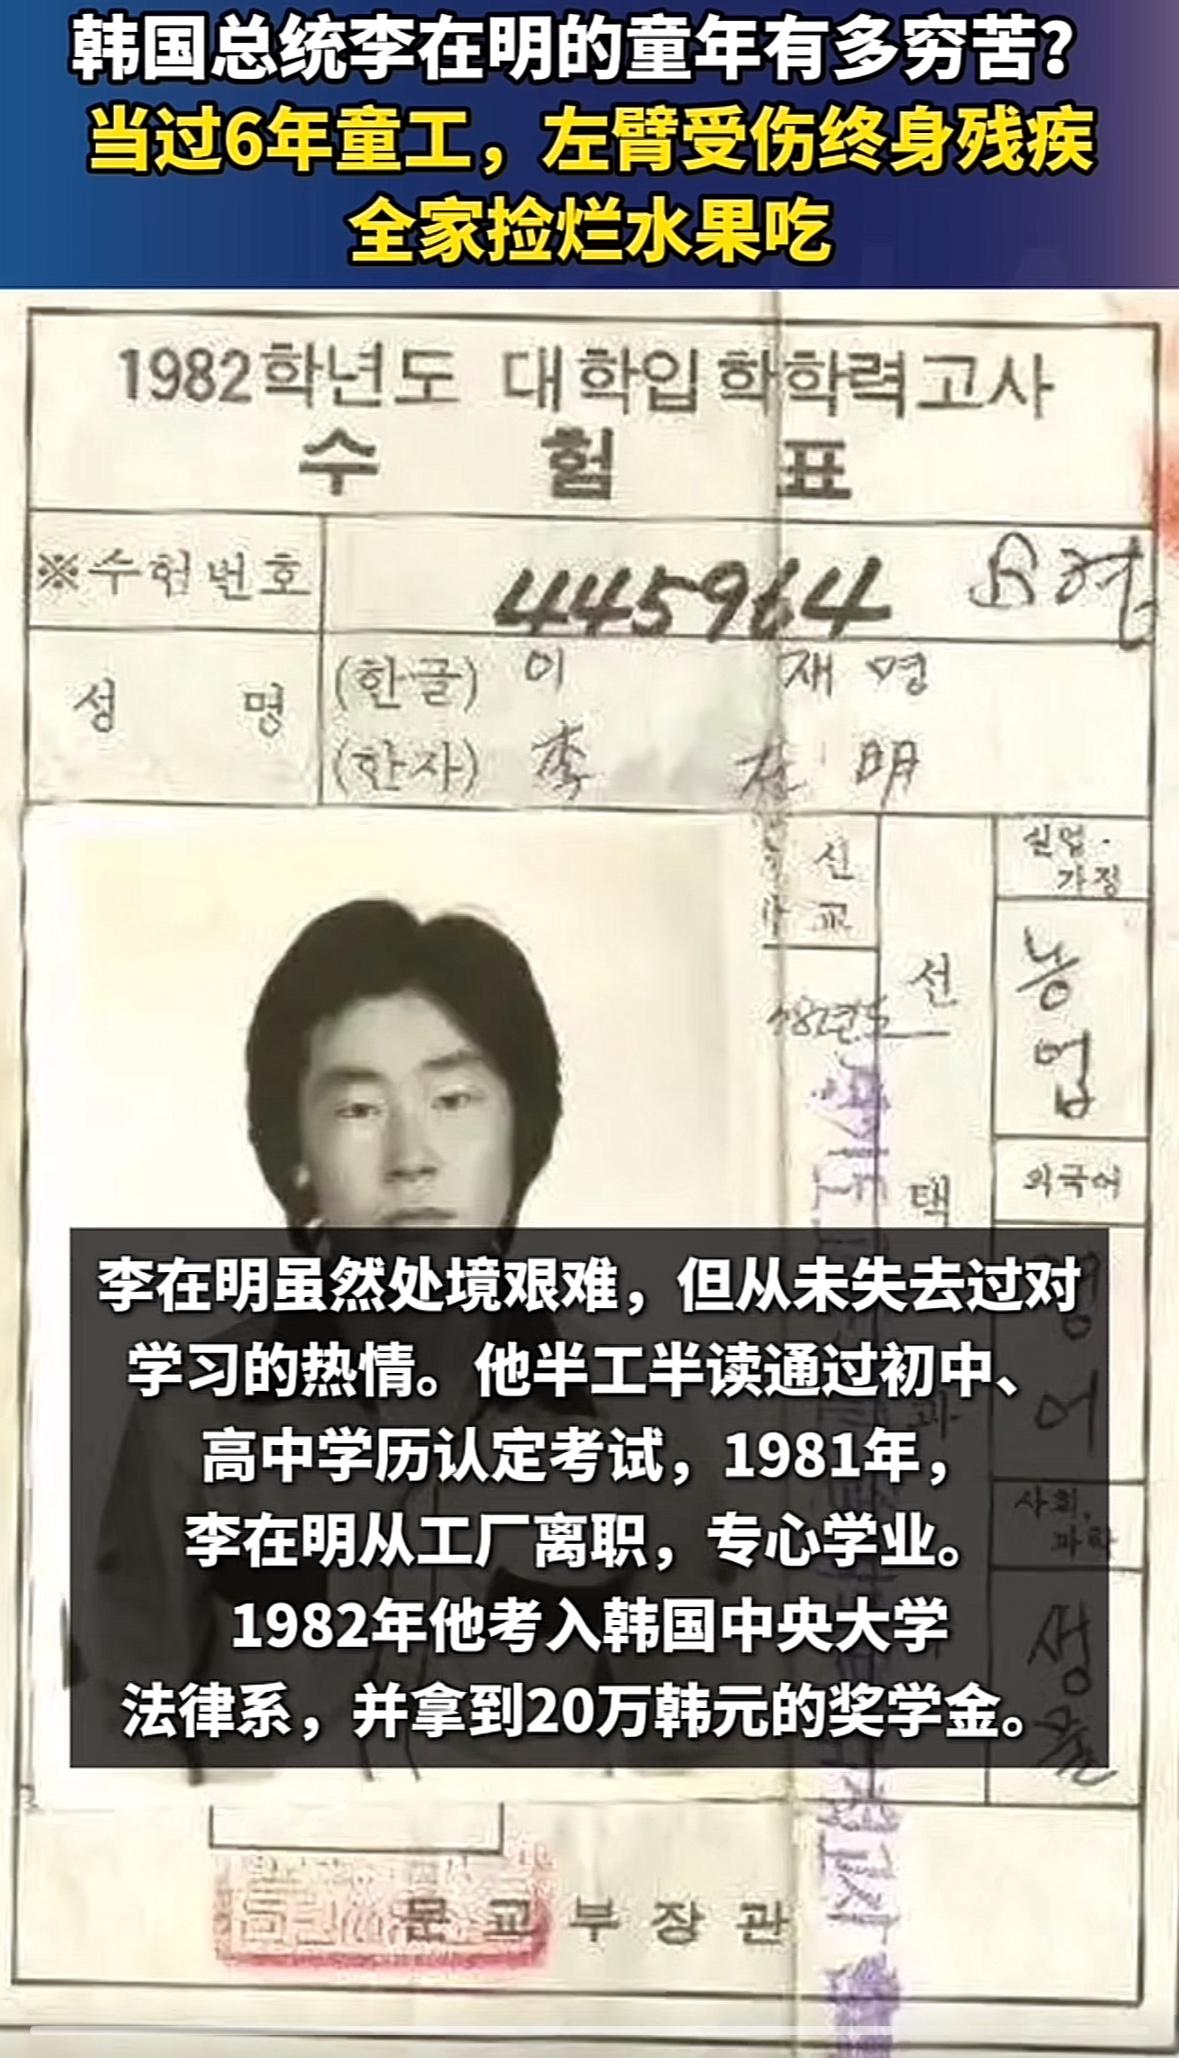 韩国总统李在明的童年有多穷苦？
当过6年童工，左臂受伤终身残疾
全家捡烂水果吃
1982학년도 대학입학학력고사
수 험 표
※수험번호
445964
성 명
(한글) 이 재 명
(한자) 李 在 明
선 택
실업·
가정
농업
외국어
영어
사회,
과학
생물
李在明虽然处境艰难，但从未失去过对
学习的热情。他半工半读通过初中、
高中学历认定考试，1981年，
李在明从工厂离职，专心学业。
1982年他考入韩国中央大学
法律系，并拿到20万韩元的奖学金。
문 교 부 장 관